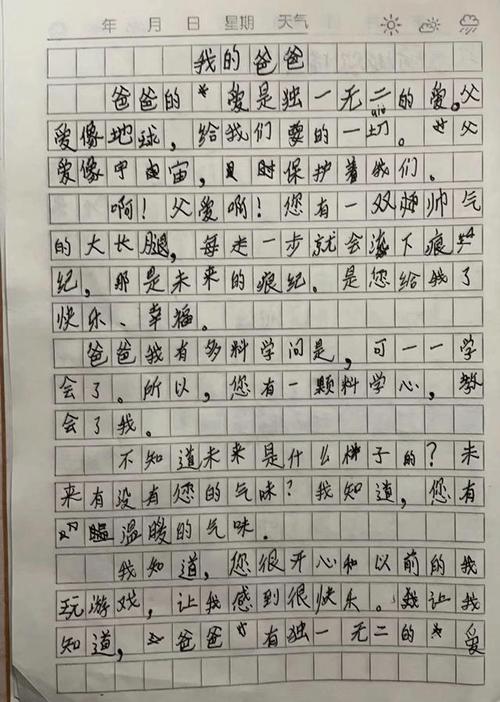 年 月 日 星期 天气
我的爸爸
爸爸的爱是独一无二的爱。父
爱像地球，给我们要的一切。父
爱像宇宙，时保护着我们。
啊！父爱啊！您有一双帅气
的大长腿，每走一步就会下痕
纪，那是未来的痕纪。是您给我了
快乐、幸福。
爸爸我有多料学问是，可一一学
会了。所以，您有一颗料学心，教
会了我。
不知道未来是什么样子的？未
来有没有您的气味？我知道，您有
温暖的气味。
我知道，您很开心和以前的我
玩游戏，让我感到很快乐。让我
知道，爸爸有独一无二的爱